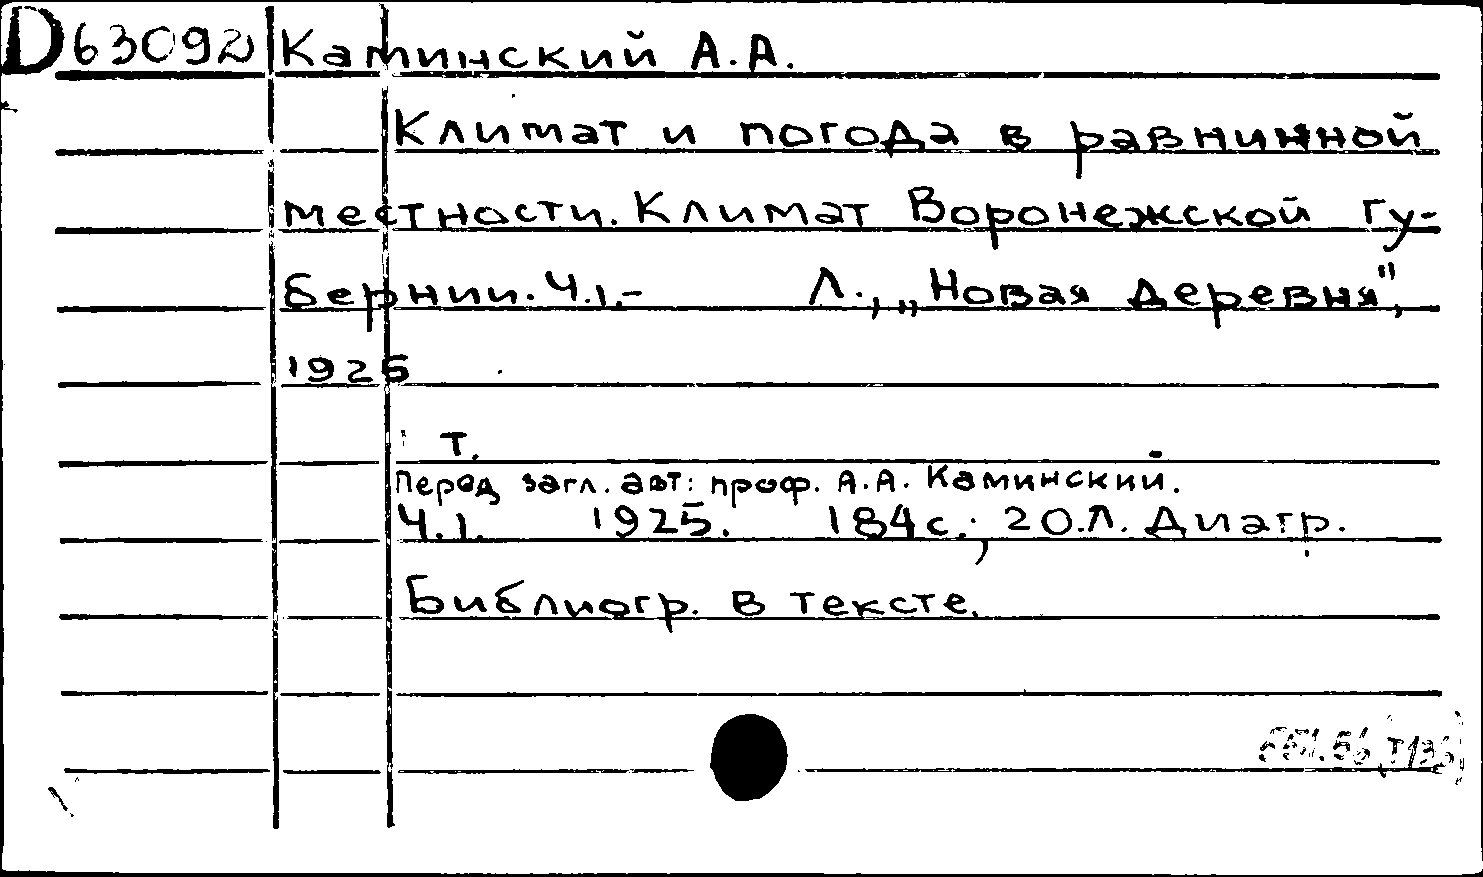 D63092 Каминский А.А.
Климат и погода в равнинной
местности. Климат Воронежской гу-
бернии. Ч.1.- Л., „Новая деревня",
1925
т.
Перед загл. авт: проф. А.А. Каминский.
Ч.1. 1925. 184с.; 20л. диагр.
Библиогр. в тексте.
551.56